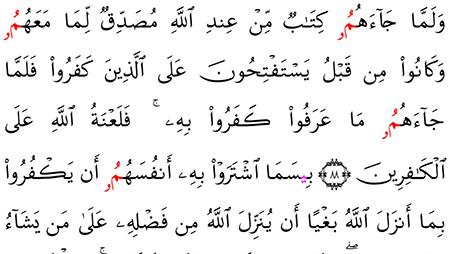 وَلَمَّا جَآءَهُمُۥ كِتَٰبٌ مِّنْ عِندِ اللَّهِ مُصَدِّقٌ لِّمَا مَعَهُمُۥ
وَكَانُوا۟ مِن قَبْلُ يَسْتَفْتِحُونَ عَلَى الَّذِينَ كَفَرُوا۟ فَلَمَّا
جَآءَهُمُۥ مَا عَرَفُوا۟ كَفَرُوا۟ بِهِۦ ۚ فَلَعْنَةُ اللَّهِ عَلَى
الْكَٰفِرِينَ ۝٨٨ بِيسَمَا اشْتَرَوْا۟ بِهِۦ أَنفُسَهُمُۥ أَن يَكْفُرُوا۟
بِمَا أَنزَلَ اللَّهُ بَغْيًا أَن يُنَزِّلَ اللَّهُ مِن فَضْلِهِۦ عَلَىٰ مَن يَشَآءُ